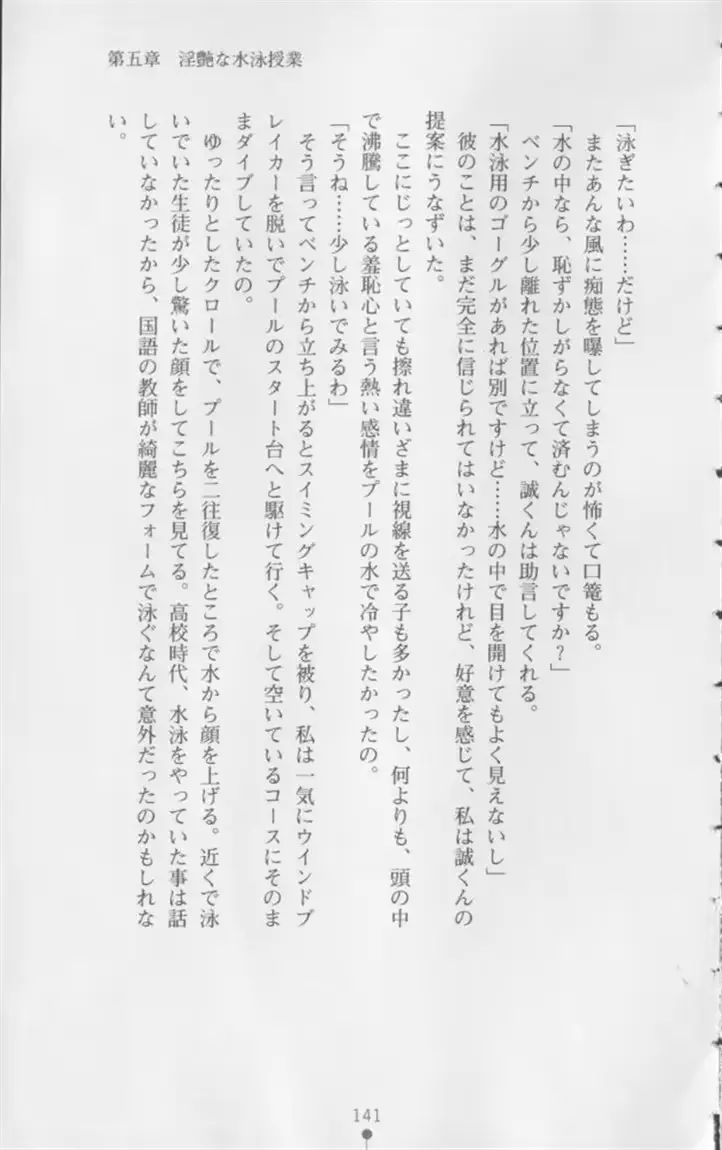 第五章　淫艶な水泳授業
「泳ぎたいわ……だけど」
　またあんな風に痴態を曝してしまうのが怖くて口篭もる。
「水の中なら、恥ずかしがらなくて済むんじゃないですか？」
　ベンチから少し離れた位置に立って、誠くんは助言してくれる。
「水泳用のゴーグルがあれば別ですけど……水の中で目を開けてもよく見えないし」
　彼のことは、まだ完全に信じられてはいなかったけれど、好意を感じて、私は誠くんの
提案にうなずいた。
　ここにじっとしていても擦れ違いざまに視線を送る子も多かったし、何よりも、頭の中
で沸騰している羞恥心と言う熱い感情をプールの水で冷やしたかったの。
「そうね……少し泳いでみるわ」
　そう言ってベンチから立ち上がるとスイミングキャップを被り、私は一気にウインドブ
レイカーを脱いでプールのスタート台へと駆けて行く。そして空いているコースにそのま
まダイブしていたの。
　ゆったりとしたクロールで、プールを二往復したところで水から顔を上げる。近くで泳
いでいた生徒が少し驚いた顔をしてこちらを見てる。高校時代、水泳をやっていた事は話
していなかったから、国語の教師が綺麗なフォームで泳ぐなんて意外だったのかもしれな
い。
141